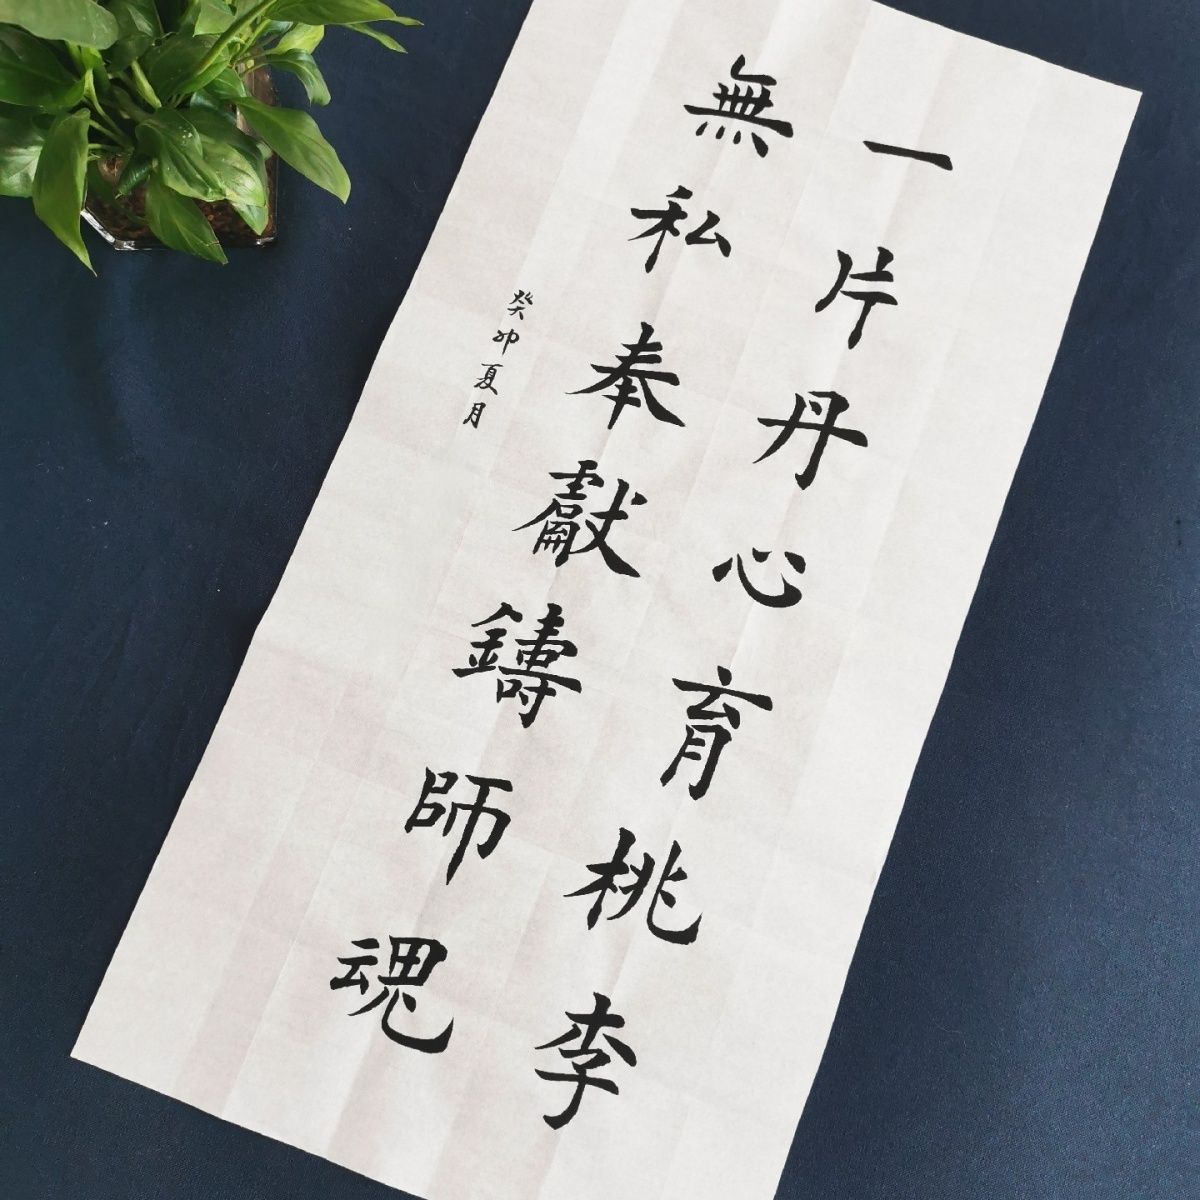 一片丹心育桃李
無私奉獻鑄師魂
癸卯夏月